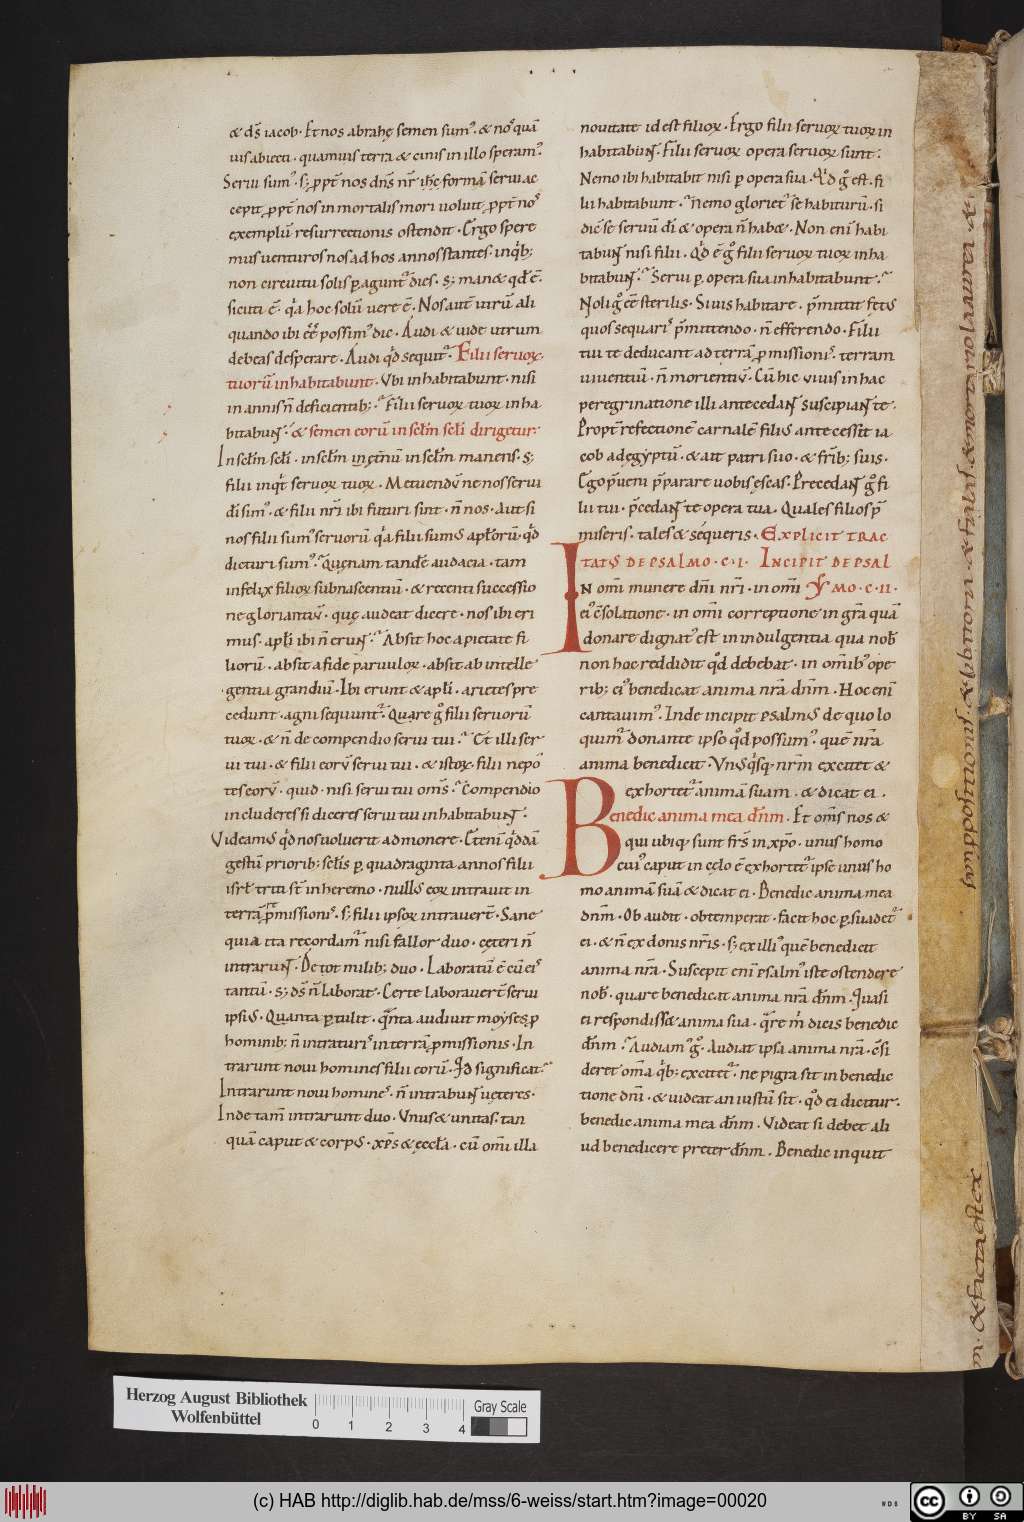 & ds̄ iacob. Et nos abrahę semen sum᾿. & no᾿ quā
uis abiecti. quamuis terra & cinis in illo speram᾿.
Serui sum᾿. s; ꝓpt̄ nos dn̄s nr̄ ih̄c formā serui ac
cepit. ꝓpt̄ nos inmortalis mori uoluit. ꝓpt̄ no᾿
exemplū resurrectionis ostendit. Ergo spere
mus uenturos nos ad hos annos stantes. in qͥb;
non circuitu solis ꝑagunt᾿ dies. s; man& qd̄ ē.
sicuti ē. qͥa hoc solū uere ē. Nos aut̄ utrū ali
quando ibi eē possim᾿ dic. Audi & uide utrum
debeas desperare. Audi qͥd sequit᾿. Filii seruoꝝ
tuorū inhabitabunt. Vbi inhabitabunt. nisi
in annis n̄ deficientib;. Filii seruoꝝ tuoꝝ inha
bitabuɴ̄. & semen eorū in sc̄lm sc̄li dirigetur.
In sc̄lm sc̄li. in sc̄lm in ęt̄nū in sc̄lm manens. s;
filii inqͥt seruoꝝ tuoꝝ. Metuendū ne nos serui
dī sim᾿. & filii nr̄i ibi futuri sint. n̄ nos. Aut si
nos filii sum᾿ seruorū qͥa filii sum᾿ apl̄orū. qͥd
dicturi sum᾿. Quęnam tandē audacia. tam
infelix filioꝝ subnascentiū. & recenti successio
ne gloriantiū. quę audeat dicere. nos ibi eri
mus. apl̄i ibi n̄ eruɴ̄. Absit hoc a pietate fi
liorū. absit a fide paruuloꝝ. absit ab intelle
gentia grandiū. Ibi erunt & apl̄i. arietes pre
cedunt. agni sequunt᾿. Quare gͦ filii seruorū
tuoꝝ. & n̄ de compendio serui tui. Et illi ser
ui tui. & filii eorū serui tui. & istoꝝ filii nepo
tes eorū. quid. nisi serui tui om̄s. Compendio
includeres si diceres serui tui inhabitabuɴ̄.
Videam᾿ qͥd nos uoluerit admonere. Cet̄ni qͥddā
gestū priorib; sc̄lis ꝑ quadraginta annos filii
isrl̄ triti st̄ in heremo. null᾿ eoꝝ intrauit in
terrā ꝓmissioni᾿. s; filii ipsoꝝ intrauer̄t. Sane
quia ita recordam᾿ nisi fallor duo. cęteri n̄
intraruɴ̄. De tot milib; duo. Laboratū ē cū ei᾿
tantū. s; ds̄ n̄ laborat. Certe laborauer̄t serui
ipsi᾿. Quanta ꝑtulit. qͣnta audiuit moyses ꝓ
hominib; n̄ intraturi᾿ in terrā ꝓmissionis. In
trarunt noui homines filii eorū. Qd̄ significat.
Intrarunt noui homine᾿. n̄ intrabuɴ̄ ueteres.
Inde tam̄ intrarunt duo. Vnus & unitas. tan
quā caput & corp᾿. xp̄s & ęccl̄a. cū omī illa
nouitate id est filioꝝ. Ergo filii seruoꝝ tuoꝝ in
habitabuɴ̄. Filii seruoꝝ opera seruoꝝ sunt.
Nemo ibi habitabit nisi ꝑ opera sua. Qͥd gͦ est. fi
lii habitabunt. nemo glori&᾿ se habiturū. si
dic̄ se seruū dī & opera n̄ hab&. Non enī habi
tabuɴ̄ nisi filii. Qͥd ē gͦ filii seruoꝝ tuoꝝ inha
bitabuɴ̄. Serui ꝑ opera sua inhabitabunt.
Noli gͦ ēē sterilis. Si uis habitare. p̄mittit fet᾿
quos sequari᾿ p̄mittendo. n̄ efferendo. Filii
tui te deducant ad terrā ꝓmissioni᾿. terram
uiuentiū. n̄ morientiū. Cū hic uiuis in hac
peregrinatione illi antecedaɴ̄ suscipiaɴ̄ te.
Propt̄ refectionē carnalē fili᾿ antecessit ia
cob ad ęgyptū. & ait patri suo. & fr̄ib; suis.
Ego p̄ueni p̄parare uobis ęscas. Precedaɴ̄ gͦ fi
lii tui. p̄cedaɴ̄ te opera tua. Quales filios p̄
miseris. tales & sequeris. EXPLICIT TRAC
TAT᾿ DE PSALMO. C.I. INCIPIT DE PSAL
MO.C.II.
IN omī munere dn̄i nr̄i. in omī
ei᾿ c̄solatione. in omī correptione in gr̄a quā
donare dignat᾿ est in indulgentia qua nob̄
non hoc reddidit qͦd debebat. in omīb᾿ ope
rib; ei᾿ benedicat anima nr̄a dn̄m. Hoc enī
cantauim᾿. Inde incipit psalm᾿ de quo lo
quim᾿ donante ipso qͦd possum᾿. quē nr̄a
anima benedicit. Vn᾿qͥsq; nr̄m excitet &
exhortet᾿ animā suam. & dicat ei.
Benedic anima mea dn̄m. Et om̄s nos &
qui ubiq; sunt fr̄s in xp̄o. unus homo
cui᾿ caput in cęlo ē exhortet᾿ ipse unus ho
mo animā suā & dicat ei. Benedic anima mea
dn̄m. Obaudit. obtemperat. facit hoc ꝑsuadet᾿
ei. & n̄ ex donis nr̄is. s; ex illi᾿ quē benedicit
anima nr̄a. Suscepit enī psalm᾿ iste ostendere
nob̄. quare benedicat anima nr̄a dn̄m. Quasi
ei respondiss& anima sua. qͣre m̄ dicis benedic
dn̄m. Audiam᾿ gͦ. Audiat ipsa anima nr̄a. c̄si
deret om̄a qͥb; excitet᾿. ne pigra sit in benedic
tione dn̄i. & uideat an iustū sit. qͦd ei dicitur.
benedic anima mea dn̄m. Videat si debet ali
ud benedicere preter dn̄m. Benedic inquit
& facta est ex
Herzog August Bibliothek
Wolfenbüttel
0 1 2 3 4
Gray Scale
(c) HAB http://diglib.hab.de/mss/6-weiss/start.htm?image=00020
WDB
cc
BY SA